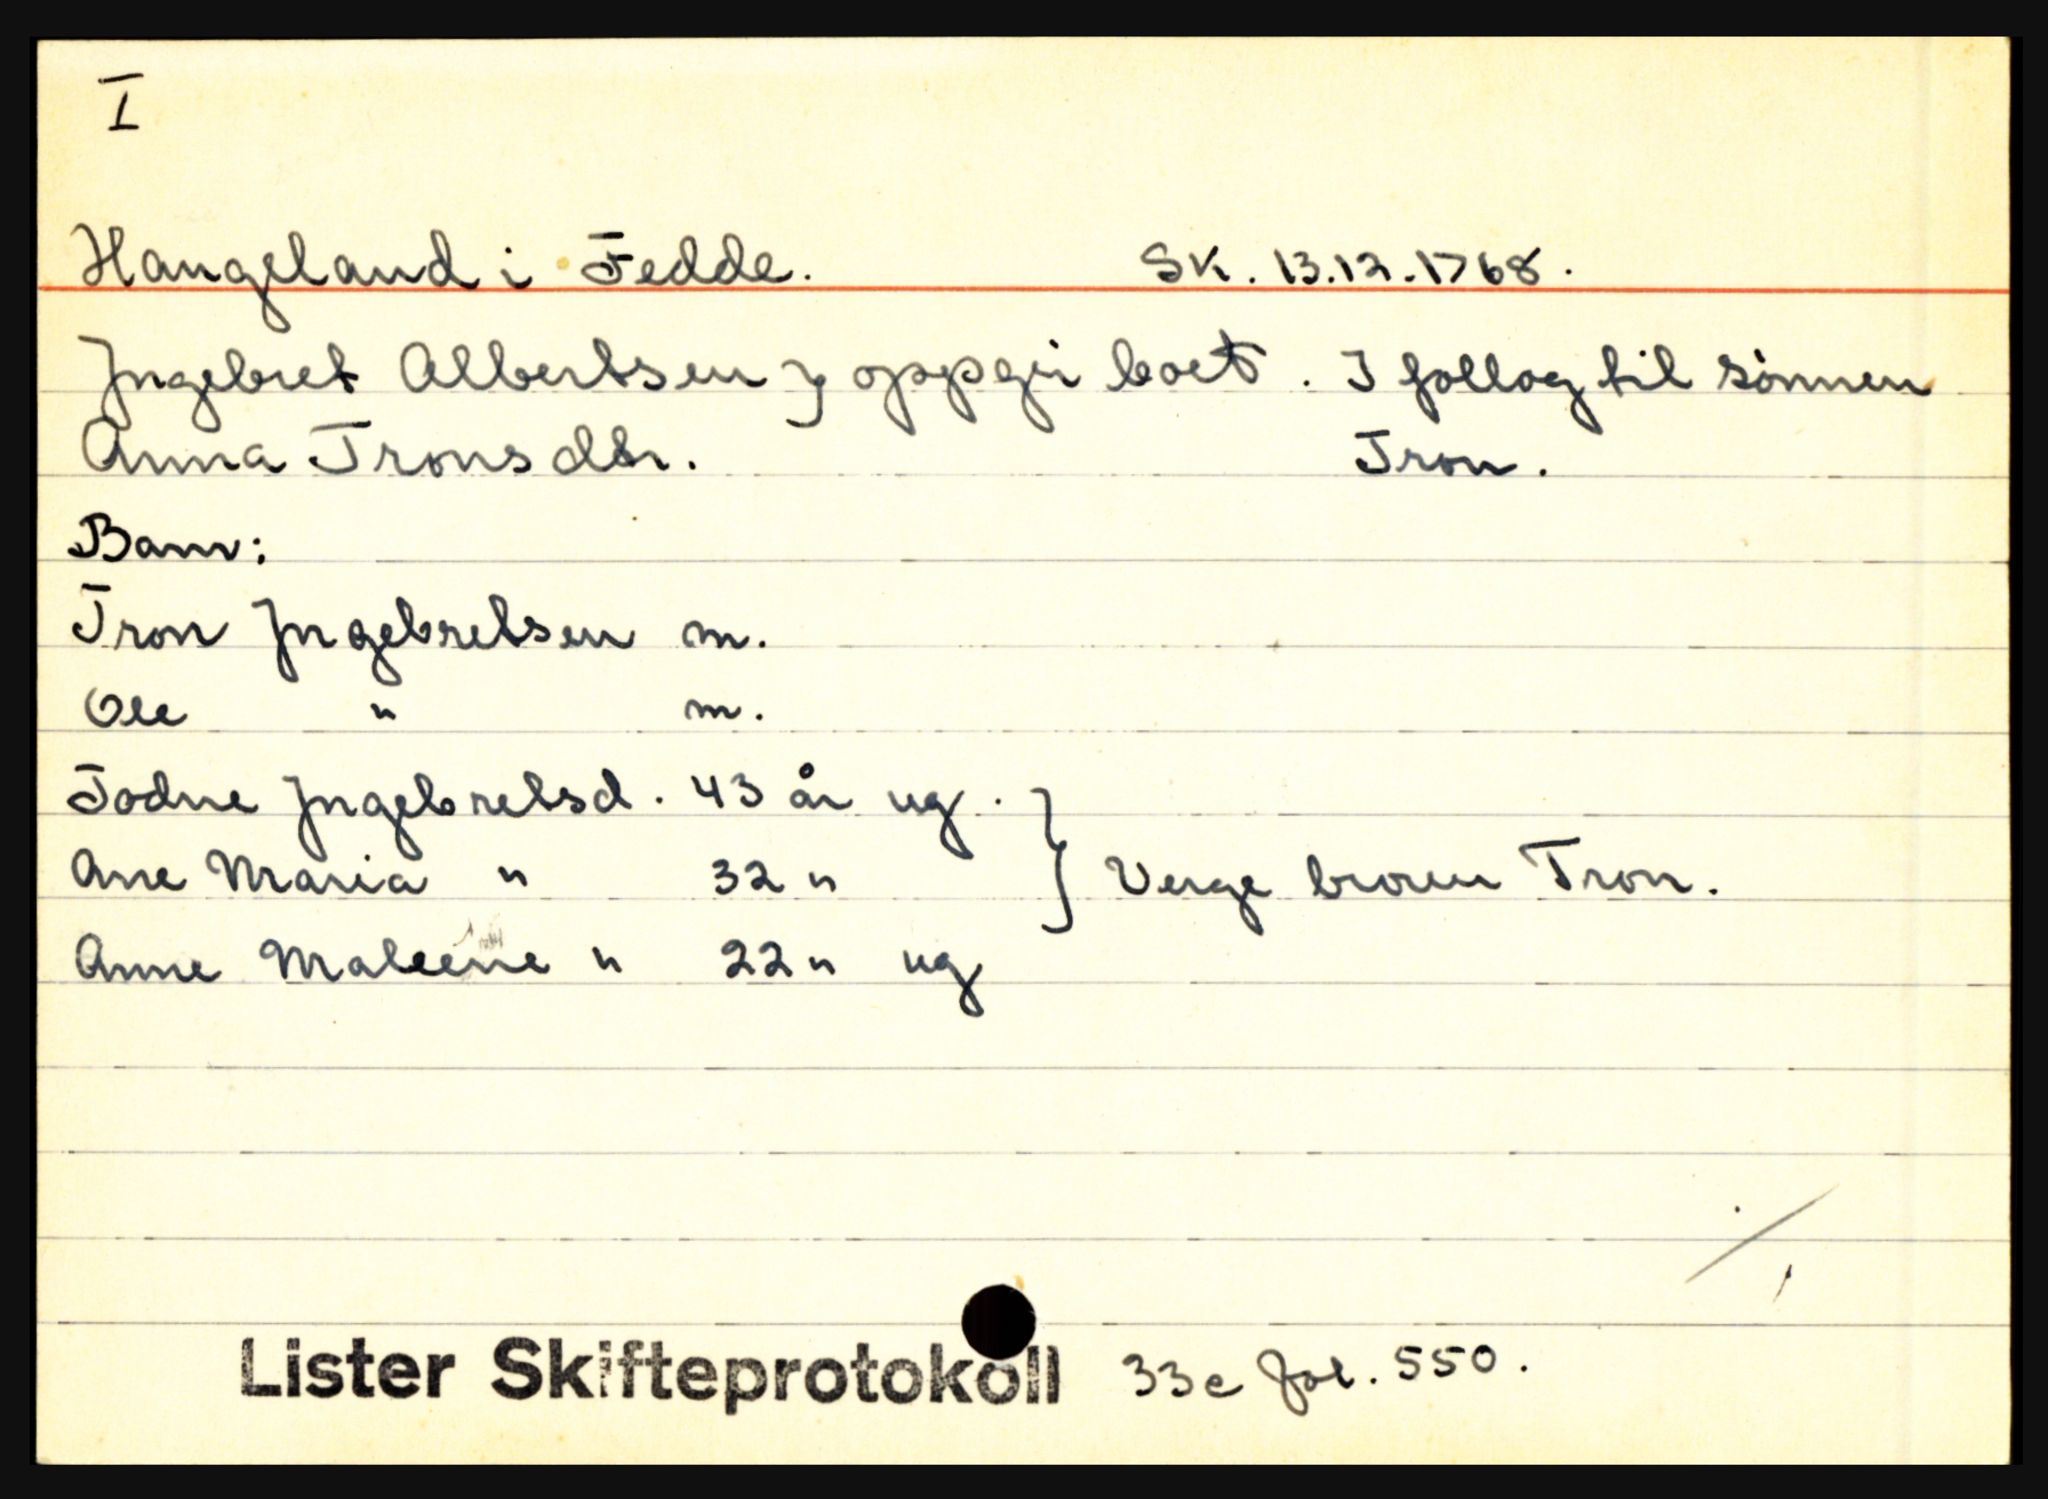 I
Haugeland i Fedde. Sk. 13.12.1768.
Ingebret Albertsen } oppgir boet. I follog til sønnen
Anna Tronsdtr. Tron.
Barn:
Tron Ingebretsen m.
Ole " m.
Todne Ingebretsd. 43 år ug. }
Ane Maria " 32 " } Verge broren Tron.
Anne Maleene " 22 " ug
Lister Skifteprotokoll 33c fol. 550.